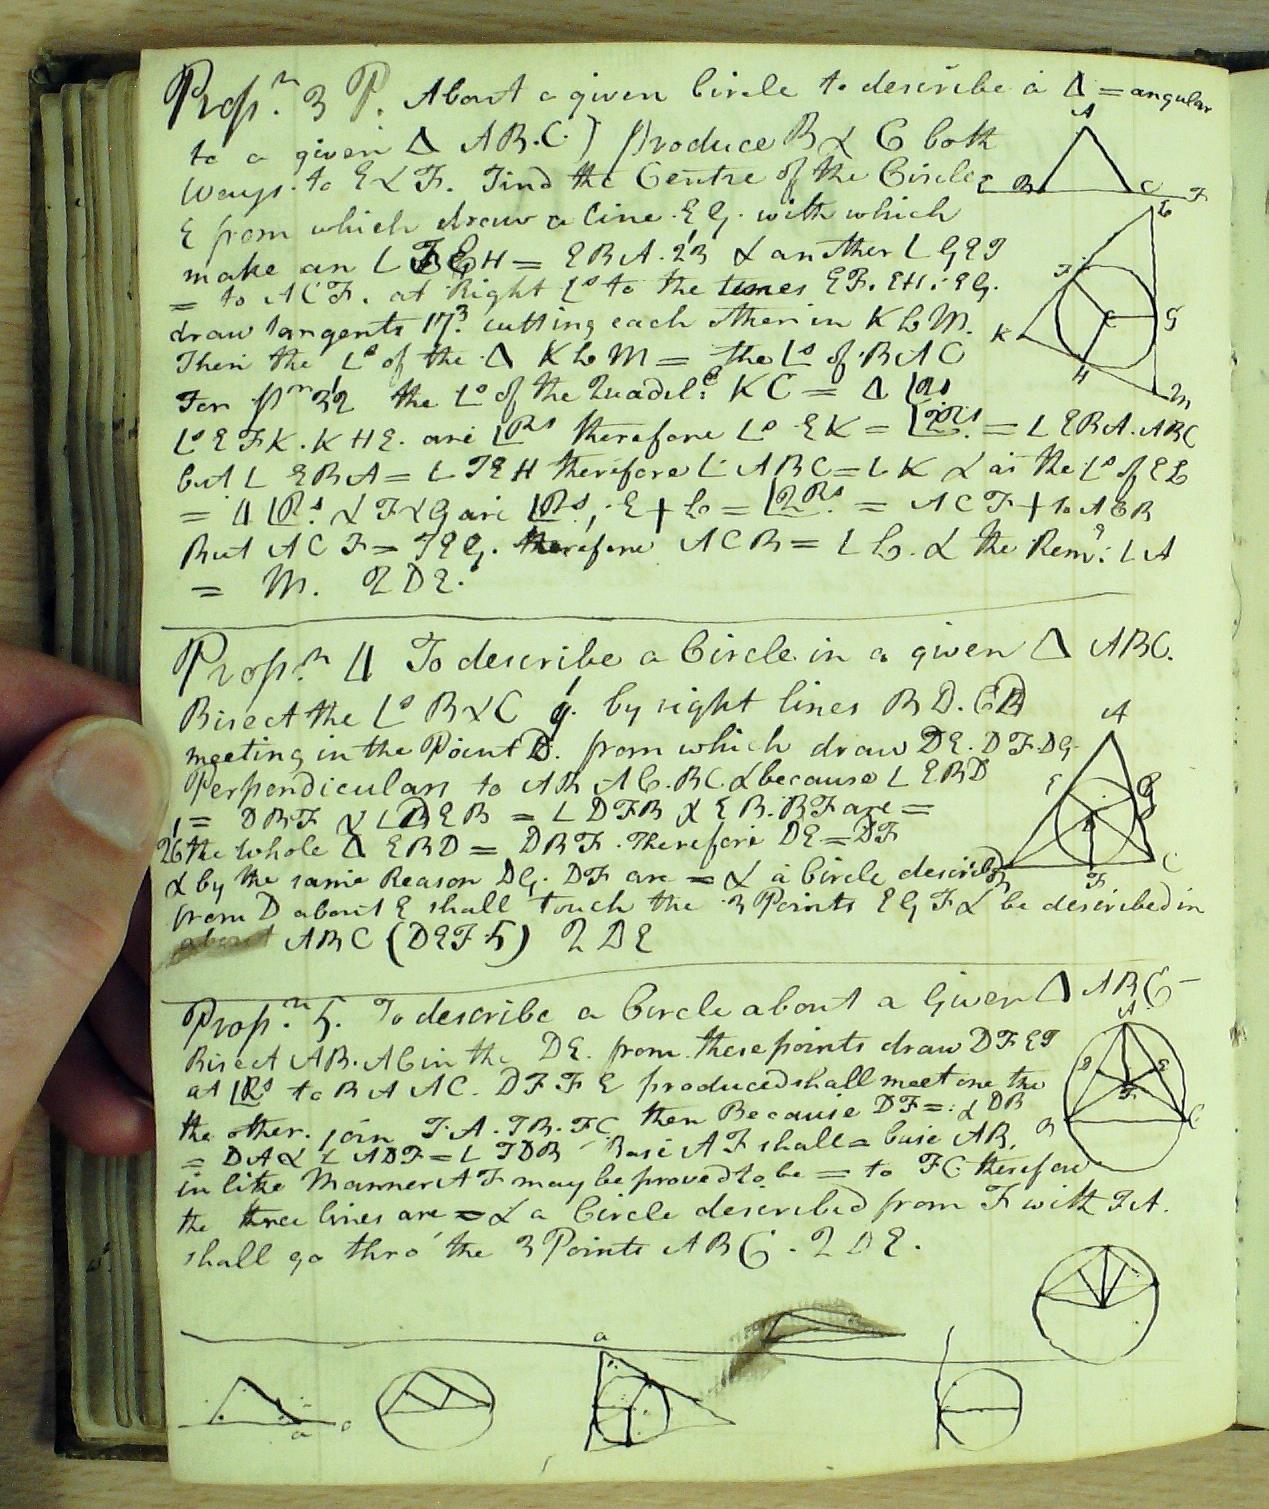 Propn. 3 P. About a given Circle to describe a Δ = angular
to a given Δ ABC.) produce B & C both
ways. to E & F. Find the Centre of the Circle
E from which draw a line. EG. with which
make an L FEH = EBA. 23 & another L GEF
= to ACF. at Right Ls to the lines EF. EH. EG.
draw tangents 17.3 cutting each other in KLM.
Then the Ls of the Δ KLM = the Ls of BAC
For prn 32 the Ls of the Quadl. KC = 4 LRs
Ls EFK. KHE. are LRs therefore Ls EK = L2Rs. = L EBA. ABC
but L EBA = L FEH therefore L ABC = L K & as the Ls of EL
= 4 LRs. & F & G are LRs, E + L = L2Rs. = ACF + to ACB
But ACF = FEG. therefore ACB = L L. & the Remr: L A
= M. QDE.
Propn. 4 To describe a Circle in a given Δ ABC.
Bisect the Ls B & C 9.1 by right lines BD. CD
meeting in the Point D. from which draw DE. DF. DG.
Perpendiculars to AB AC. BC. & because L EBD
= DBF & L DEB = L DFB & EB. BF are =
26.1 the whole Δ EBD = DBF. Therefore DE = DF
& by the same Reason DG. DF are = & a Circle described
from D about E shall touch the 3 Points EGF & be described in
about ABC (DEF. 5) QDE
Propn. 5. To describe a Circle about a Given Δ ABC
Bisect AB. AC in the DE. from these points draw DF EF
at LRs to BA AC. DF FE produced shall meet one the
the other. join FA. FB. FC then Because DF =: & DB
= DA & L ADF = L FDB Base AF shall = base AB.
in like Manner AF may be proved to be = to FC therefore
the three lines are = & a Circle described from F with FA.
shall go thro' the 3 Points ABC. QDE.